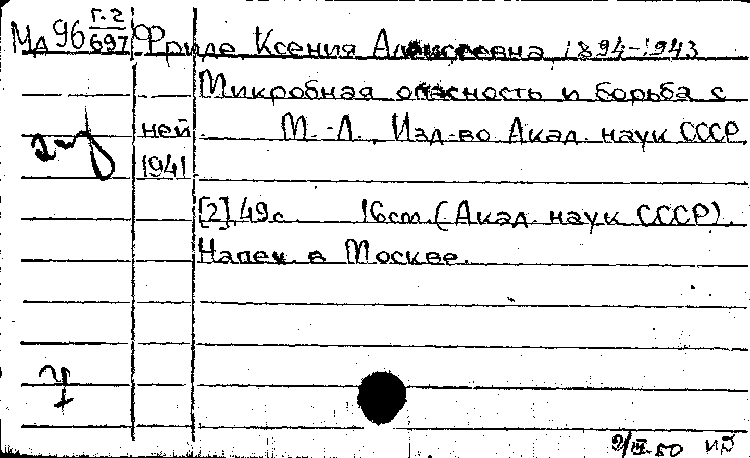 Мд 96 Г-2/697 Фриде, Ксения Алексеевна 1894-1943
Микробная опасность и борьба с
ней. М.-Л., Изд-во Акад. наук СССР,
1941
[2], 49 с. 16 см. (Акад. наук СССР).
Напеч. в Москве.
9/III.50